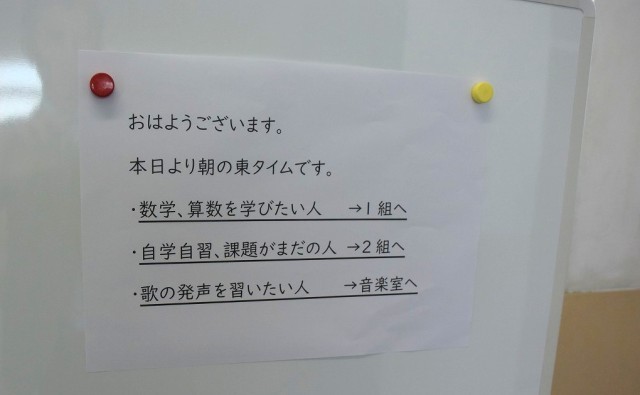 おはようございます。
本日より朝の東タイムです。
・数学、算数を学びたい人　→1組へ
・自学自習、課題がまだの人 →2組へ
・歌の発声を習いたい人　→音楽室へ